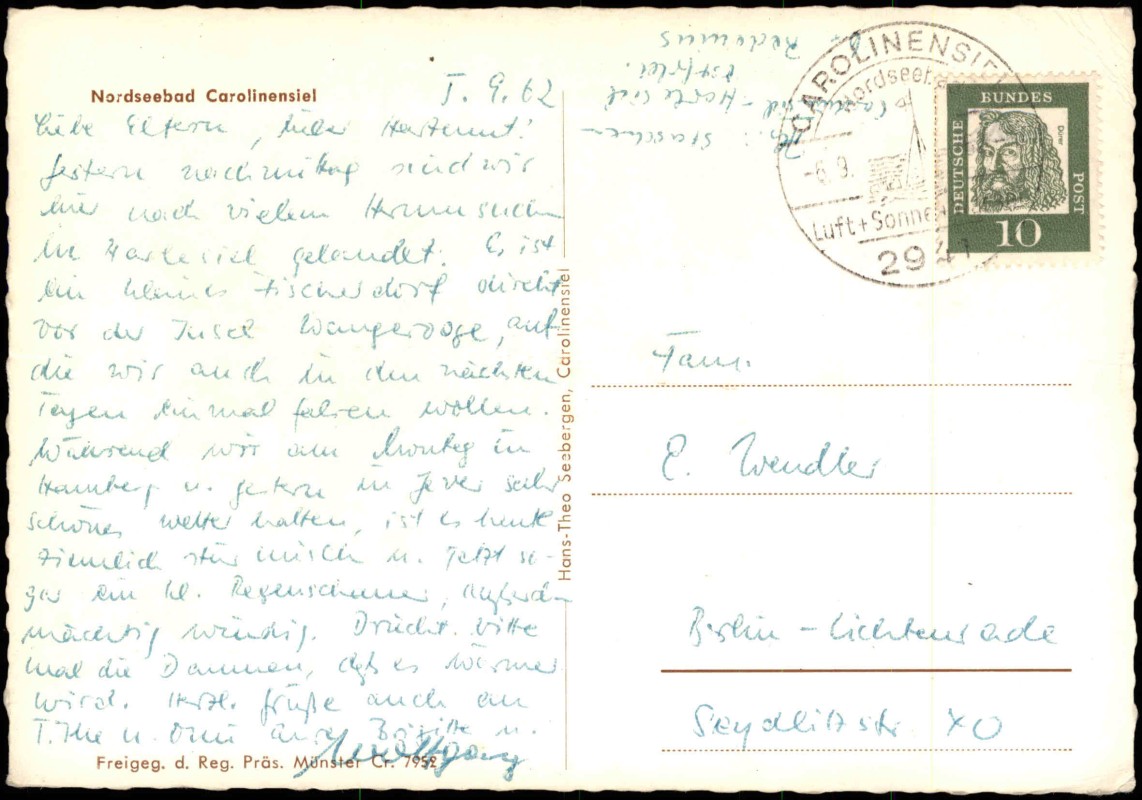 Nordseebad Carolinensiel
5. 9. 62
Liebe Eltern, lieber Hartmut!
Gestern nachmittag sind wir
hier nach vielem Herumsuchen
in Harlesiel gelandet. Es ist
ein kleines Fischerdorf direkt
vor der Insel Wangerooge, auf
die wir auch in den nächsten
Tagen einmal fahren wollen.
Während wir am Montag in
Hamburg u. gestern in Jever sehr
schönes Wetter hatten, ist es heute
ziemlich stürmisch u. jetzt so-
gar ein kl. Regenschauer, außerdem
mächtig windig. Drückt bitte
mal die Daumen, daß es wärmer
wird. Herzl. Grüße auch an
T. The u. Omi Brigitte u.
Wolfgang
Freigeg. d. Reg. Präs. Münster Cr. 7952
Hans-Theo Seebergen, Carolinensiel
Carolinensiel - Harlesiel
Ostfrld.
CAROLINENSIEL
Nordseebad
-6.9.
Luft+Sonne+
2941
DEUTSCHE BUNDES POST
Dürer
10
Fam.
E. Wendler
Berlin - Lichtenrade
Seydlitzstr. 40